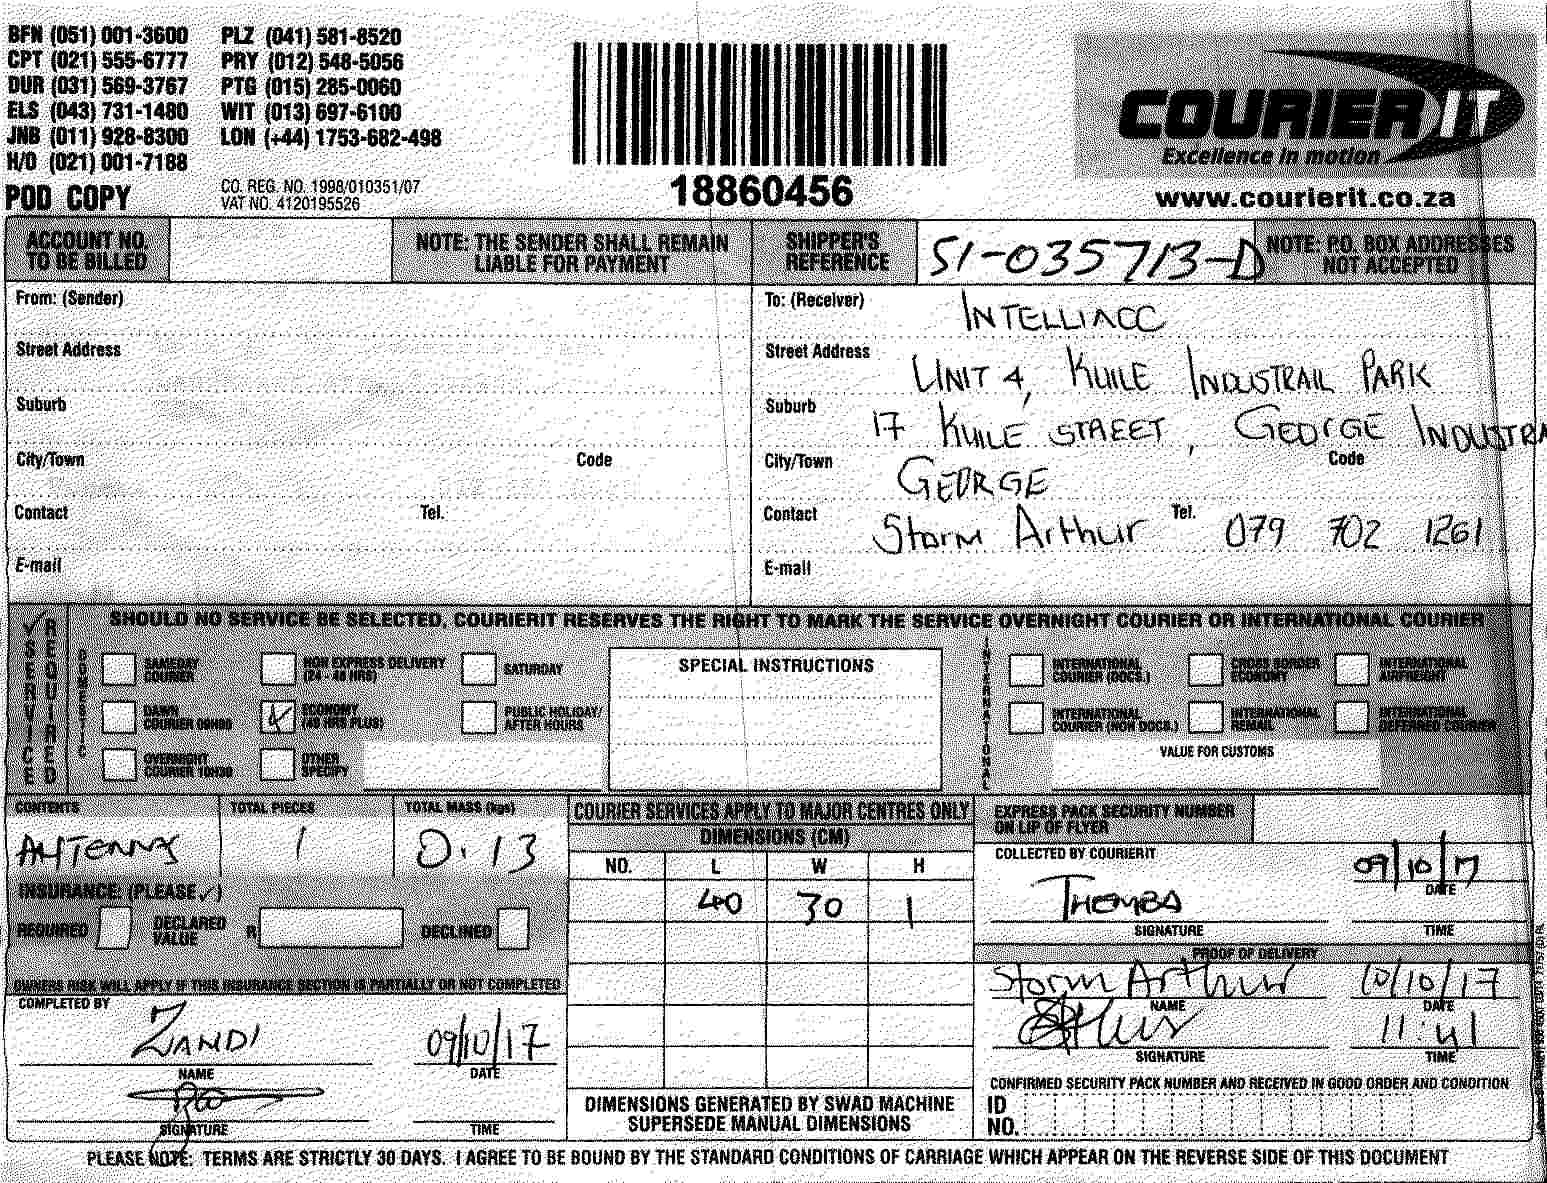 BFN (051) 001-3600 PLZ (041) 581-8520
CPT (021) 555-6777 PRY (012) 548-5056
DUR (031) 569-3767 PTG (015) 285-0060
ELS (043) 731-1480 WIT (013) 697-6100
JNB (011) 928-8300 LON (+44) 1753-682-498
H/O (021) 001-7188
POD COPY
CO. REG. NO. 1998/010351/07
VAT NO. 4120195526
18860456
COURIER IT
Excellence in motion
www.courierit.co.za
ACCOUNT NO. TO BE BILLED
NOTE: THE SENDER SHALL REMAIN LIABLE FOR PAYMENT
SHIPPER'S REFERENCE
SI-035713-D
NOTE: P.O. BOX ADDRESSES NOT ACCEPTED
From: (Sender)
Street Address
Suburb
City/Town Code
Contact Tel.
E-mail
To: (Receiver) INTELLIACC
Street Address UNIT 4, KUILE INDUSTRAIL PARK
Suburb 17 KUILE STREET, GEORGE INDUSTRA
City/Town GEORGE Code
Contact Storm Arthur Tel. 079 702 1261
E-mail
SERVICE REQUIRED
SHOULD NO SERVICE BE SELECTED, COURIERIT RESERVES THE RIGHT TO MARK THE SERVICE OVERNIGHT COURIER OR INTERNATIONAL COURIER
DOMESTIC
SAMEDAY COURIER
NON EXPRESS DELIVERY (24 - 48 HRS)
SATURDAY
DAWN COURIER 09H00
ECONOMY (48 HRS PLUS)
PUBLIC HOLIDAY/ AFTER HOURS
OVERNIGHT COURIER 10H30
OTHER SPECIFY
SPECIAL INSTRUCTIONS
INTERNATIONAL
INTERNATIONAL COURIER (DOCS.)
CROSS BORDER ECONOMY
INTERNATIONAL AIRFREIGHT
INTERNATIONAL COURIER (NON DOCS.)
INTERNATIONAL REMAIL
INTERNATIONAL DEFERRED COURIER
VALUE FOR CUSTOMS
CONTENTS TOTAL PIECES TOTAL MASS (kgs)
ANTENNA 1 0.13
INSURANCE: (PLEASE ✓)
REQUIRED DECLARED VALUE R DECLINED
OWNERS RISK WILL APPLY IF THIS INSURANCE SECTION IS PARTIALLY OR NOT COMPLETED
COMPLETED BY
ZANDI 09/10/17
NAME DATE
SIGNATURE TIME
COURIER SERVICES APPLY TO MAJOR CENTRES ONLY
DIMENSIONS (CM)
NO. L W H
40 30 1
DIMENSIONS GENERATED BY SWAD MACHINE
SUPERSEDE MANUAL DIMENSIONS
EXPRESS PACK SECURITY NUMBER
ON LIP OF FLYER
COLLECTED BY COURIERIT
THEMBA 09/10/17
DATE
SIGNATURE TIME
PROOF OF DELIVERY
Storm Arthur 10/10/17
NAME DATE
11:41
SIGNATURE TIME
CONFIRMED SECURITY PACK NUMBER AND RECEIVED IN GOOD ORDER AND CONDITION
ID NO.
PLEASE NOTE: TERMS ARE STRICTLY 30 DAYS. I AGREE TO BE BOUND BY THE STANDARD CONDITIONS OF CARRIAGE WHICH APPEAR ON THE REVERSE SIDE OF THIS DOCUMENT